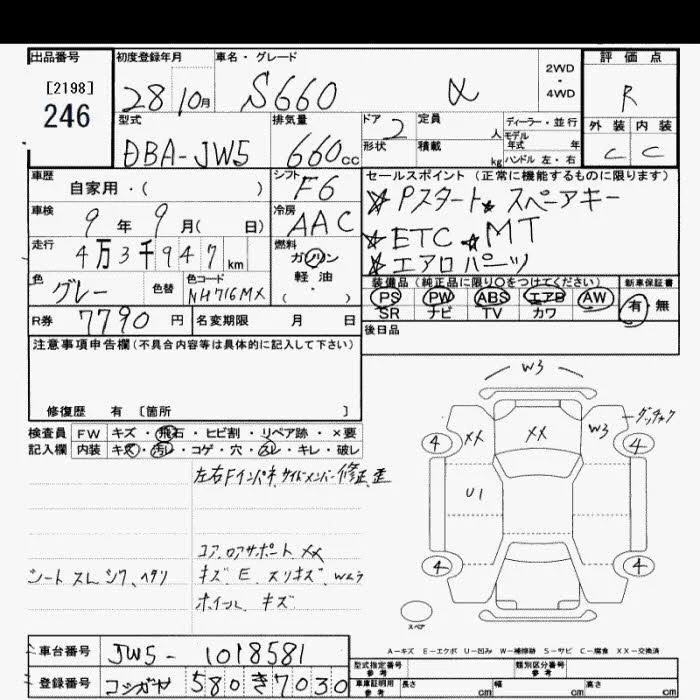 出品番号 初度登録年月 車名・グレード 評価点
[2198]
246
28 10月 S660 α 2WD・4WD R
型式 排気量 ドア 2 定員 人 ディーラー・並行 外装 内装
DBA-JW5 660cc 形状 積載 kg モデル年式 年式 ハンドル 左・右 C C
車歴 シフト セールスポイント(正常に機能するものに限ります)
自家用・( ) F6 ☆Pスタート☆スペアキー
車検 9年9月(日) 冷房 AAC ☆ETC☆MT
走行 4万3千947km 燃料 ガソリン・軽油・( ) ☆エアロパーツ
色 グレー 色替 色コード NH716MX
装備品(純正品に限り〇をつけてください) 新車保証書
PS PW ABS エアB AW 有・無
SR ナビ TV カワ
R券 7790円 名変期限 月 日
後日品
注意事項申告欄(不具合内容等は具体的に記入して下さい)
修復歴 有 [箇所 ]
W3
ダッチャク
検査員 FW キズ・飛石・ヒビ割・リペア跡・×要
記入欄 内装 キズ・汚レ・コゲ・穴・スレ・キレ・破レ
4 XX XX W3 4
左右Fインパネ,サイドメンバー修正,歪
U1
コア,ロアサポート XX
シート スレ シワ, ヘタリ
キズ、E、スリキズ、Wムラ
ホイール キズ
4 4
スペア
A-キズ E-エクボ U-凹み W-補修跡 S-サビ C-腐食 XX-交換済
車台番号 JW5-1018581
型式指定番号 参考 類別区分番号 参考
登録番号 コシガヤ 580 き 7030
車庫証明用 参考 長さ cm 幅 cm 高さ cm